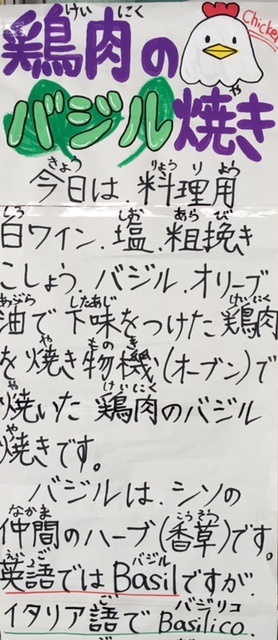 鶏肉の
Chicken
バジル焼き
今日は 料理用
白ワイン、塩、粗挽き
こしょう、バジル、オリーブ
油で下味をつけた鶏肉
を焼き物機(オーブン)で
焼いた鶏肉のバジル
焼きです。
バジルは、シソの
仲間のハーブ(香草)です。
英語ではBasilですが、
イタリア語でBasilico、